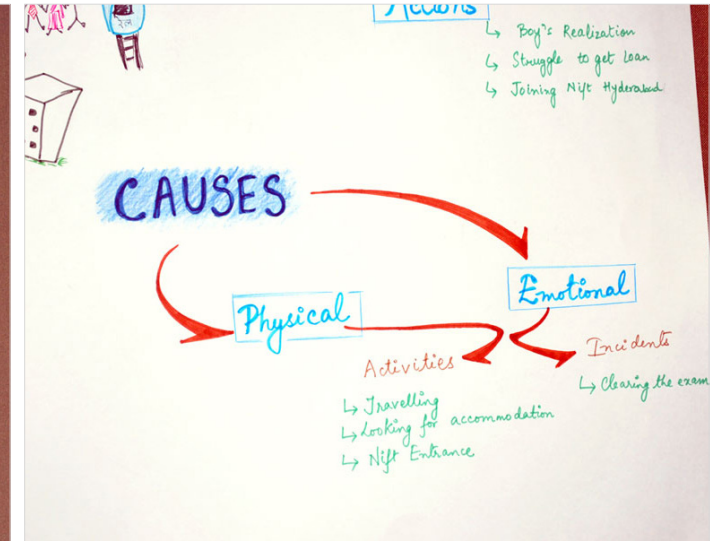 रेल
Actions
↳ Boy's Realization
↳ Struggle to get Loan
↳ Joining Nift Hyderabad
CAUSES
Physical
Emotional
Activities
↳ Travelling
↳ Looking for accommodation
↳ Nift Entrance
Incidents
↳ Clearing the exam